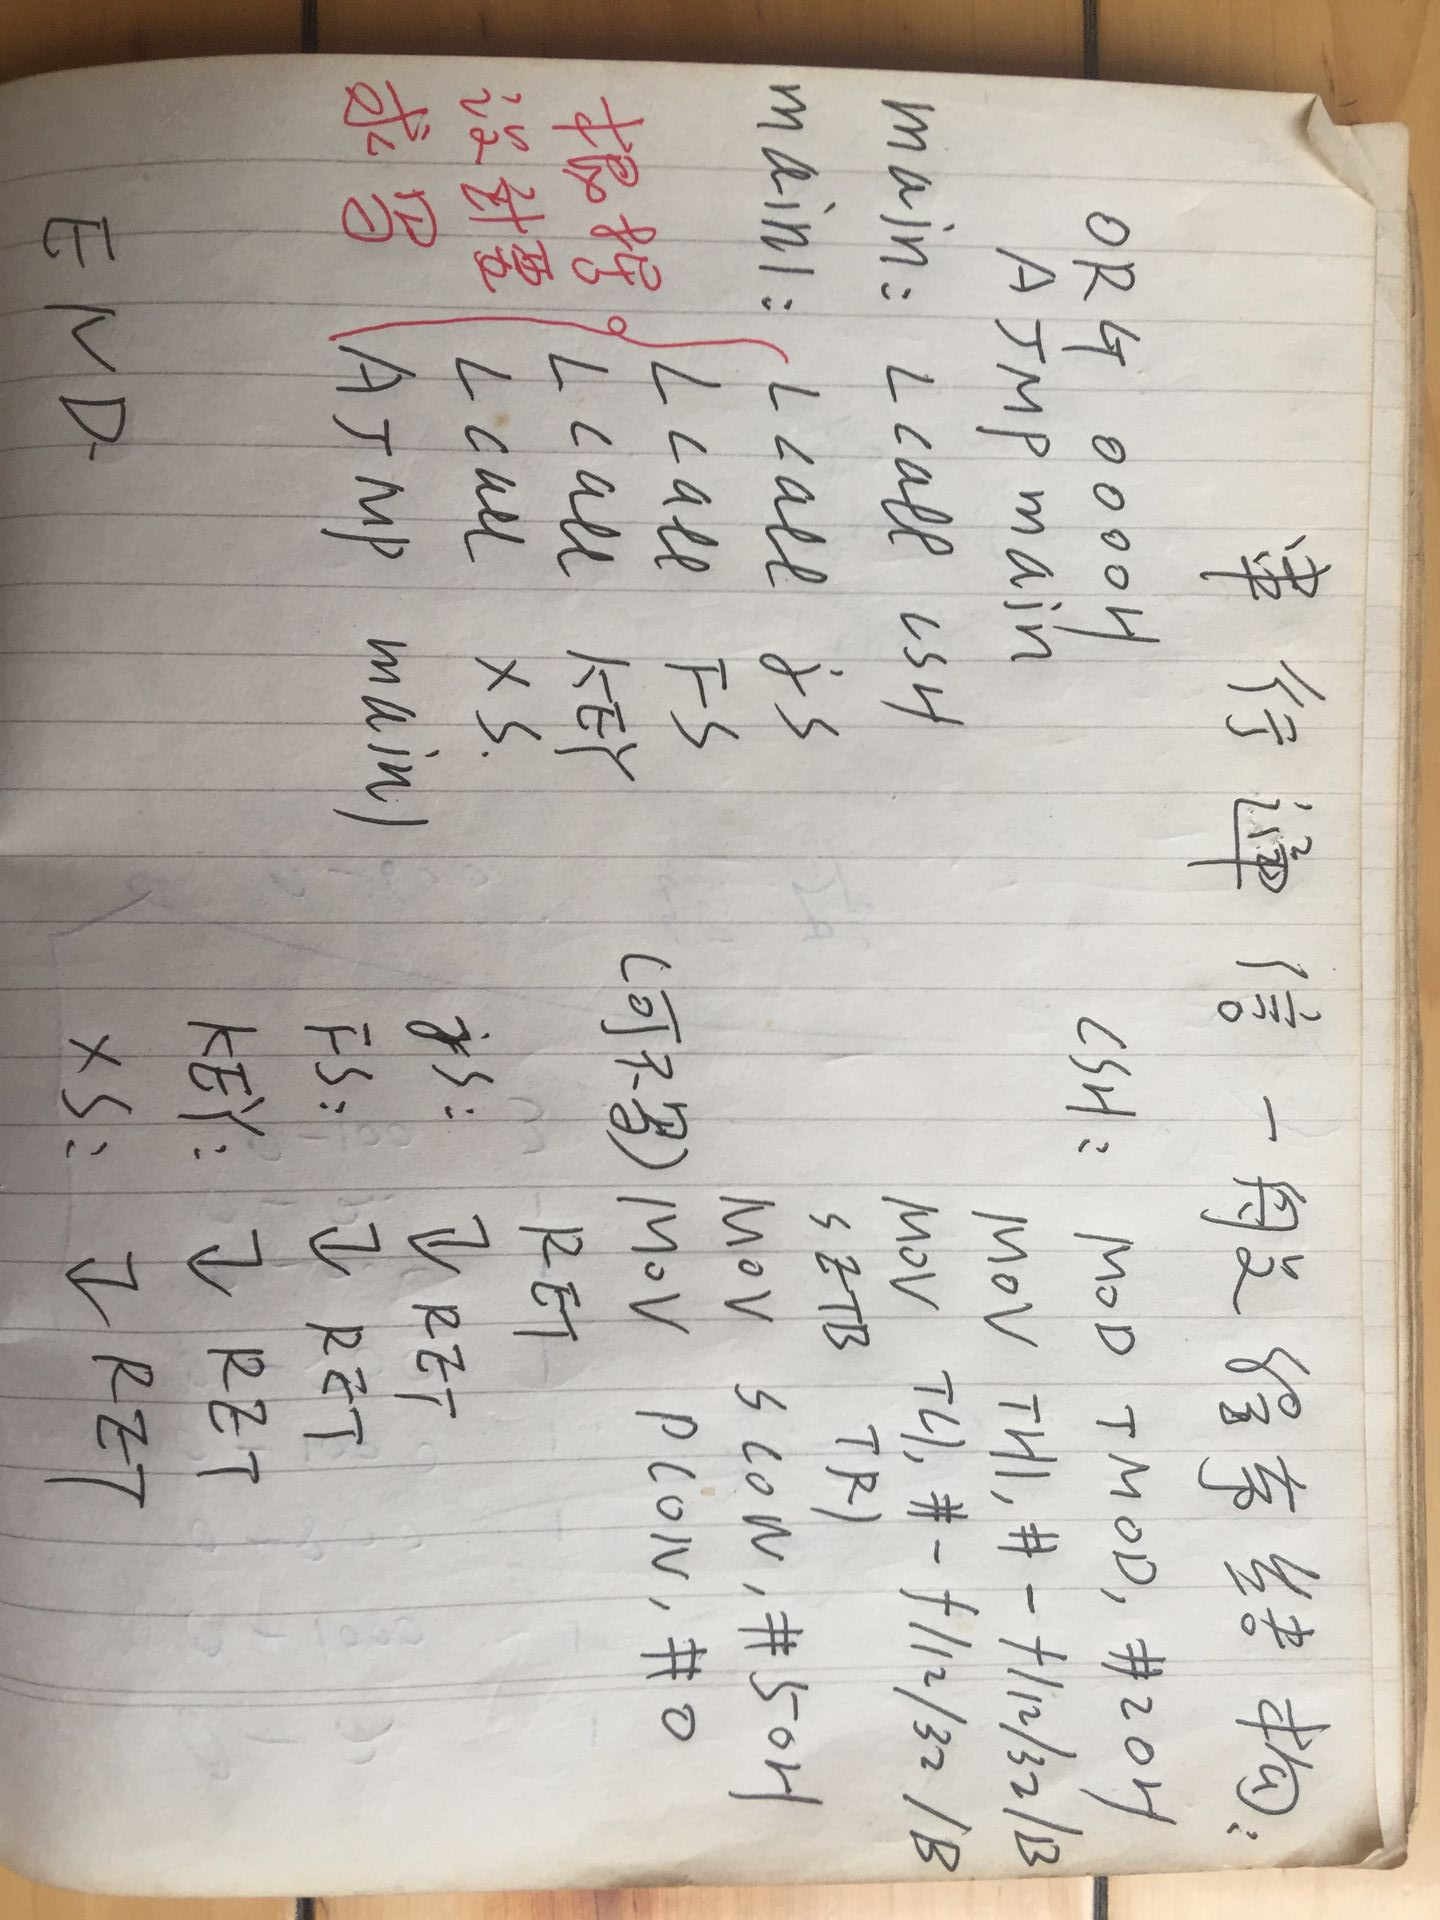 串行通信一般程序结构:
ORG 0000H
AJMP main
main: Lcall CSH
main1: Lcall jS
Lcall FS
Lcall KEY
Lcall XS.
AJMP main1
END
根据
设计要
求写
CSH: MOD TMOD, #20H
MOV TH1, #-f/12/32/B
MOV TL1, #-f/12/32/B
SETB TR1
MOV SCON, #50H
(可不写) MOV PCON, #0
RET
jS: ↓ RET
FS: ↓ RET
KEY: ↓ RET
XS: ↓ RET